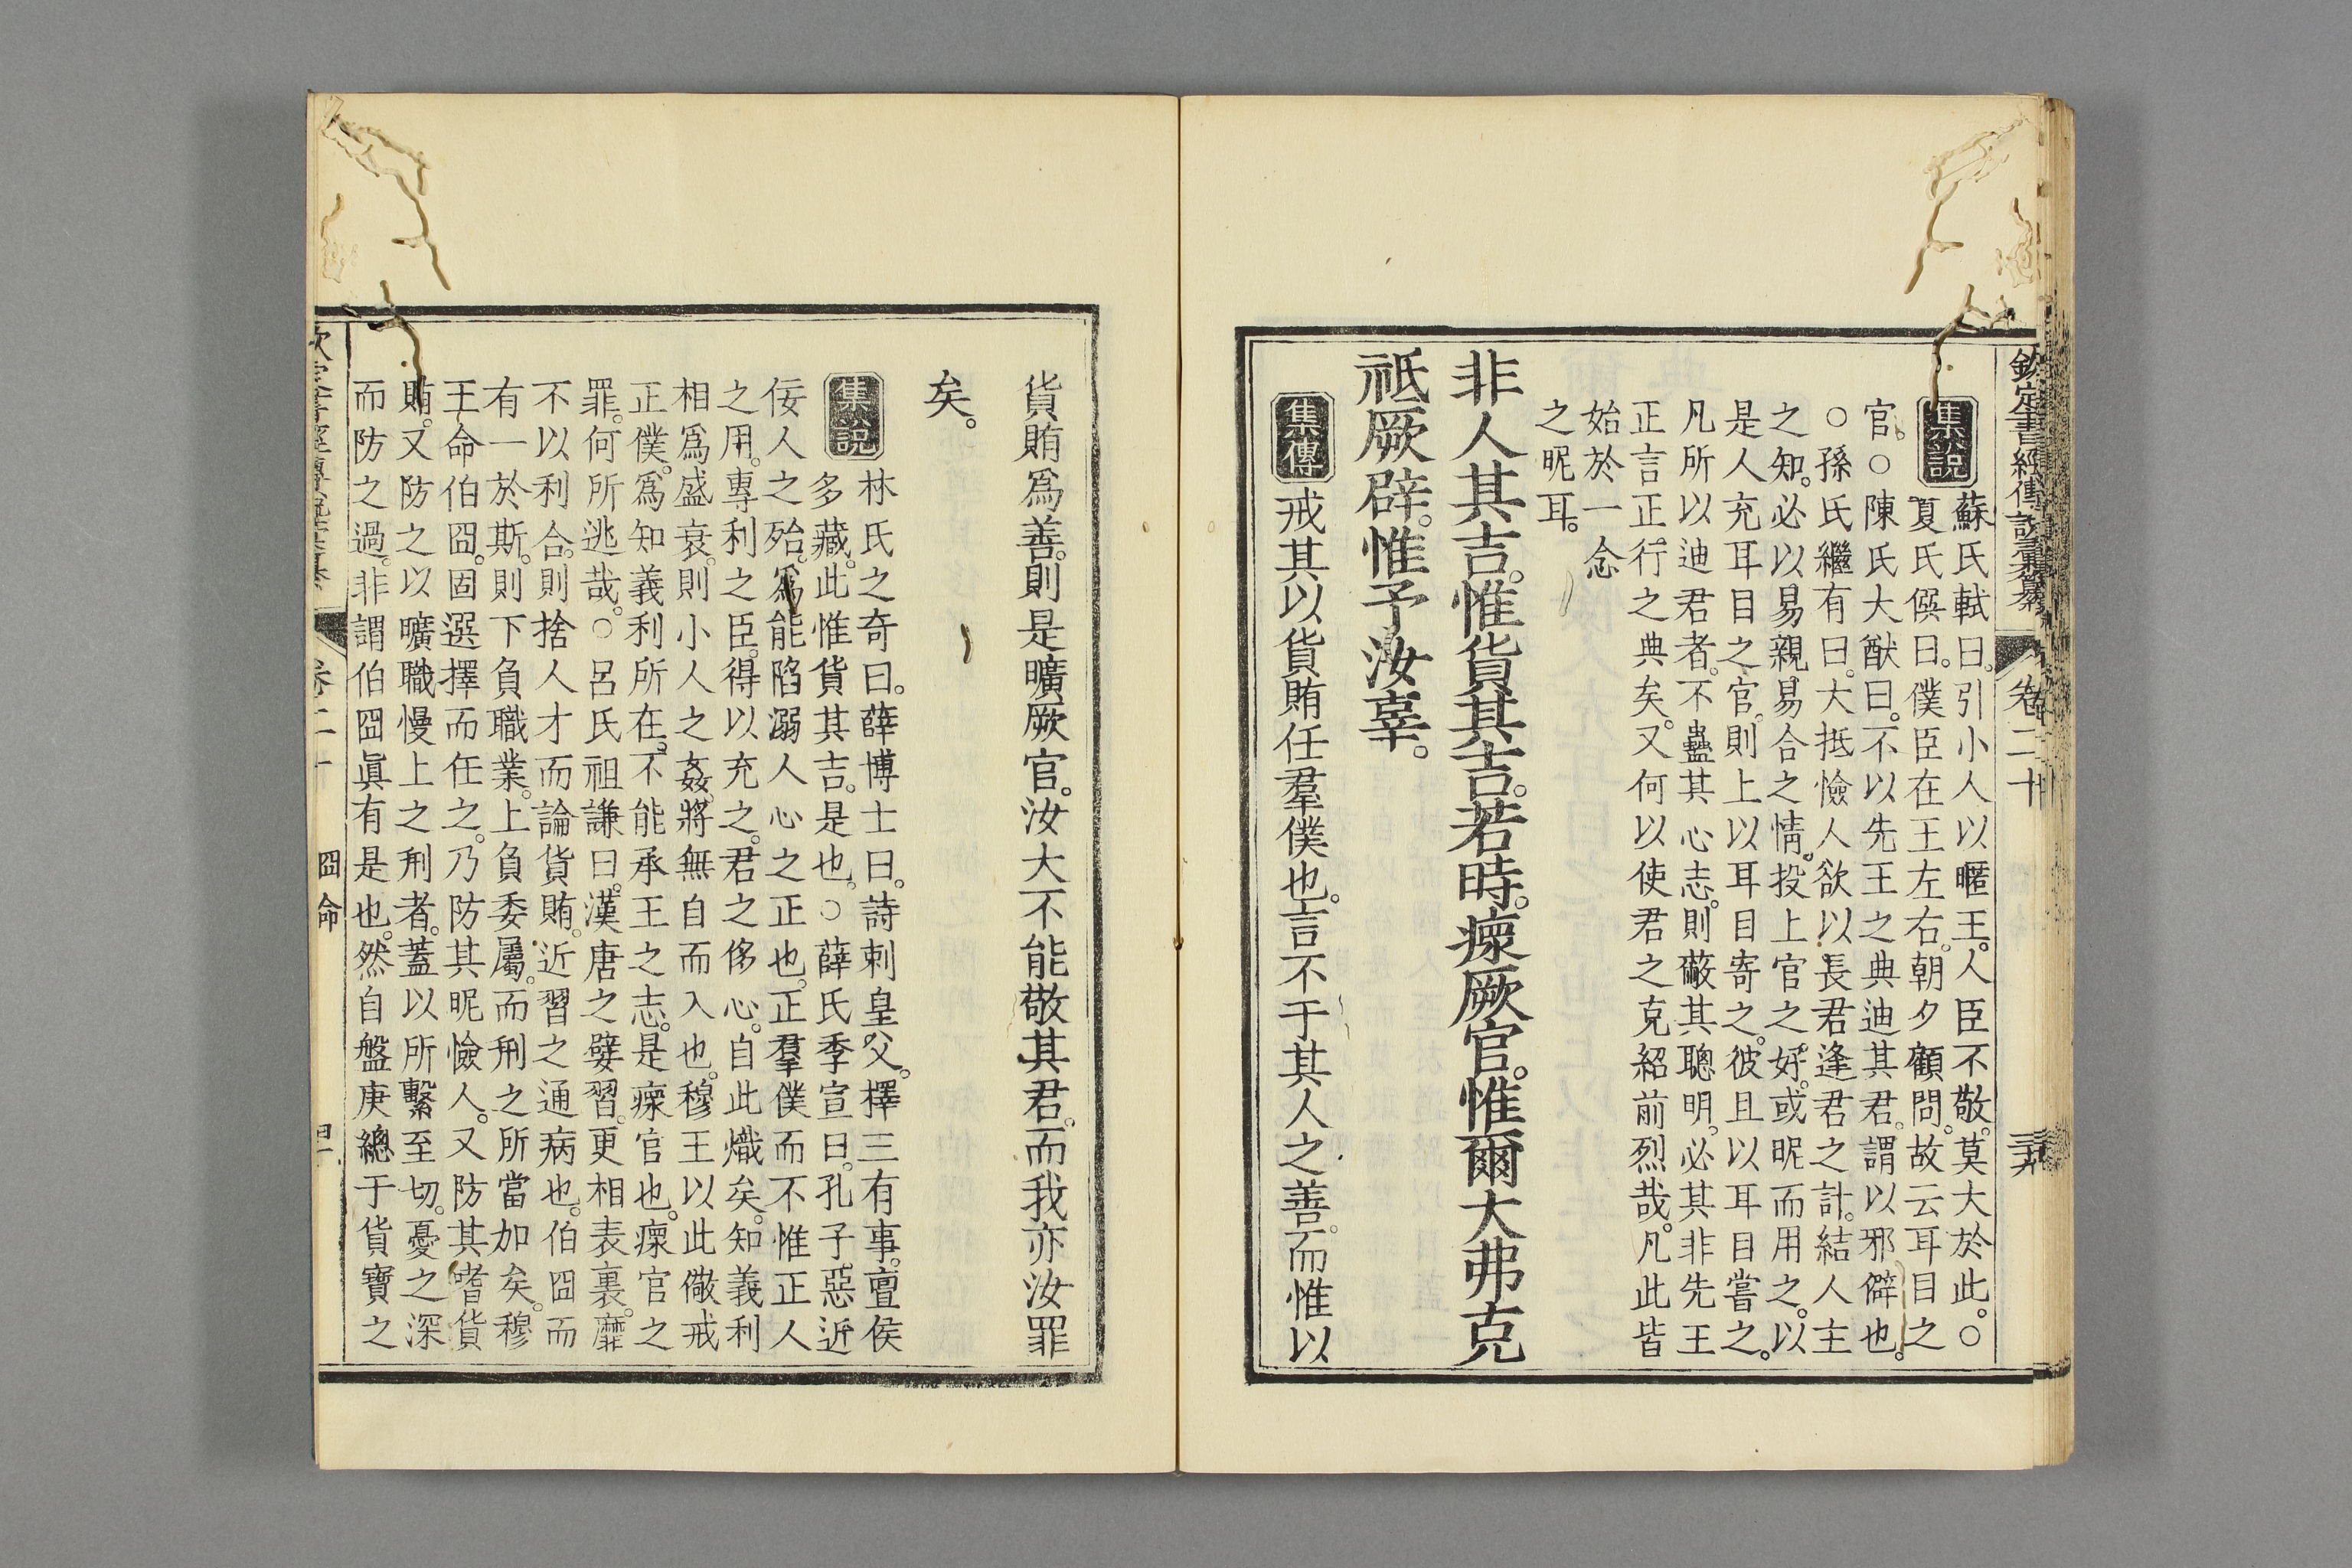 欽定書經傳說彙纂 卷二十
集說 蘇氏軾曰。引小人以暱王。人臣不敬。莫大於此。○
夏氏僎曰。僕臣在王左右。朝夕顧問。故云耳目之
官。○陳氏大猷曰。不以先王之典迪其君。謂以邪僻也。
○孫氏繼有曰。大抵憸人欲以長君逢君之計。結人主
之知。必以易親易合之情。投上官之好。或昵而用之。以
是人充耳目之官。則上以耳目寄之。彼且以耳目嘗之。
凡所以迪君者。不蠱其心志。則蔽其聰明。必其非先王
正言正行之典矣。又何以使君之克紹前烈哉。凡此皆
始於一念
之昵耳。
非人其吉。惟貨其吉。若時。瘝厥官。惟爾大弗克
祗厥辟。惟予汝辜。
集傳 戒其以貨賄任羣僕也。言不于其人之善。而惟以
貨賄爲善。則是曠厥官。汝大不能敬其君。而我亦汝罪
矣。
集說 林氏之奇曰。薛博士曰。詩刺皇父。擇三有事。亶侯
多藏。此惟貨其吉。是也。○薛氏季宣曰。孔子惡近
佞人之殆。爲能陷溺人心之正也。正羣僕而不惟正人
之用。專利之臣。得以充之。君之侈心。自此熾矣。知義利
相爲盛衰。則小人之姦。將無自而入也。穆王以此儆戒
正僕。爲知義利所在。不能承王之志。是瘝官也。瘝官之
罪。何所逃哉。○呂氏祖謙曰。漢唐之嬖習。更相表裏。靡
不以利合。則捨人才而論貨賄。近習之通病也。伯冏而
有一於斯。則下負職業。上負委屬。而刑之所當加矣。穆
王命伯冏。固選擇而任之。乃防其昵憸人。又防其嗜貨
賄。又防之以曠職慢上之刑者。蓋以所繫至切。憂之深
而防之過。非謂伯冏眞有是也。然自盤庚總于貨寶之
卷二十 冏命